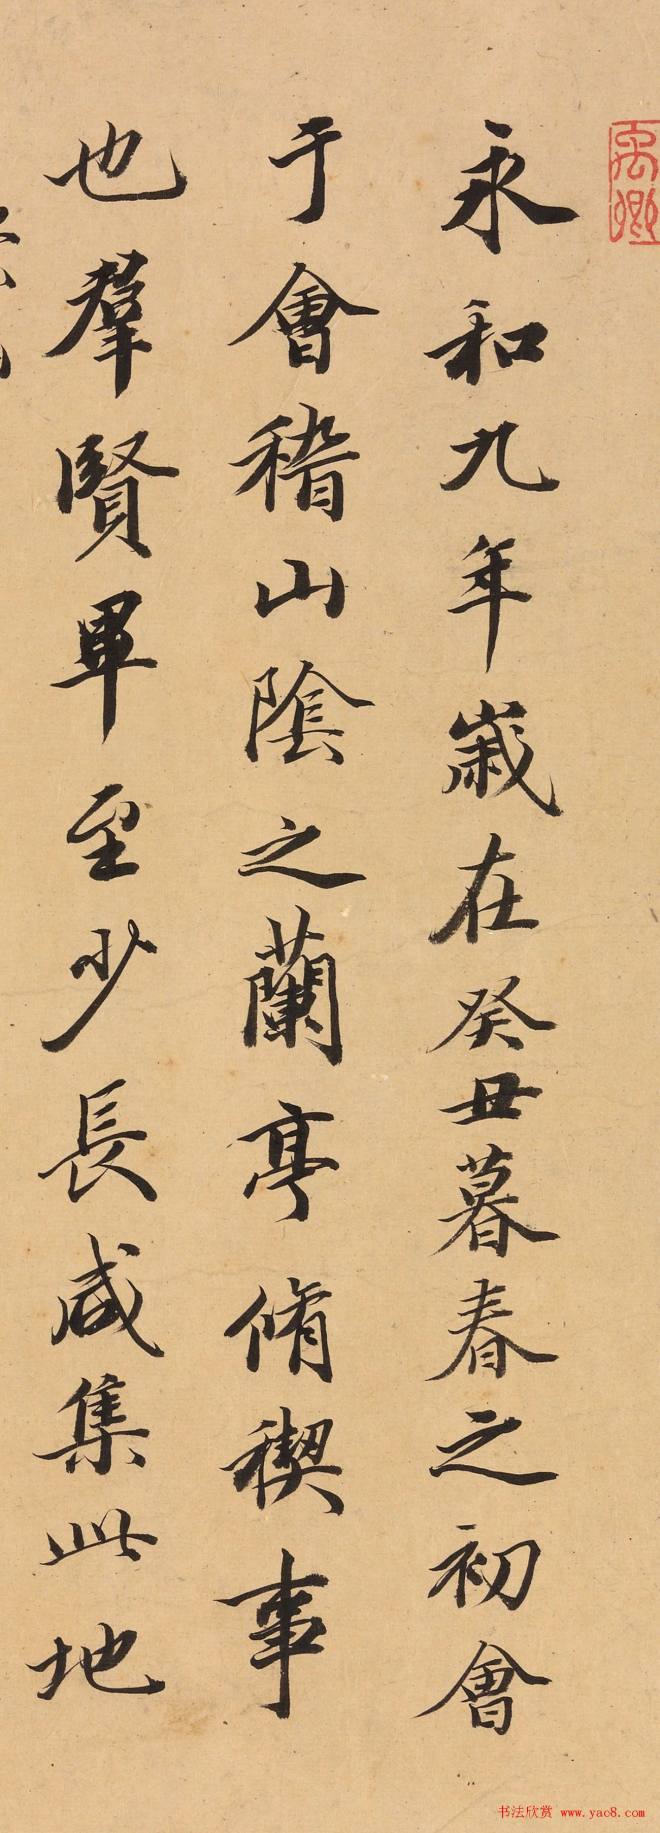 永和九年歲在癸丑暮春之初會
于會稽山陰之蘭亭脩稧事
也羣賢畢至少長咸集此地
禹卿
书法欣赏 www.yac8.com